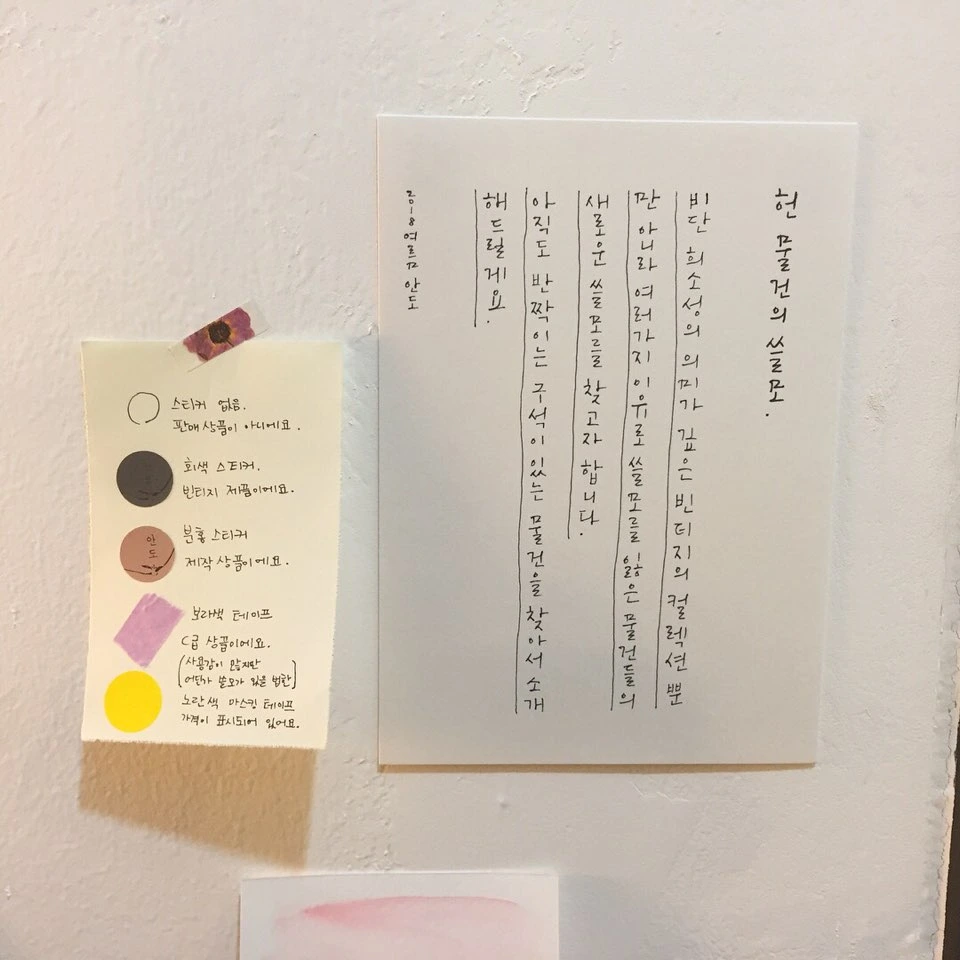 헌 물건의 쓸모.
비단 희소성의 의미가 깊은 빈티지의 컬렉션 뿐
만 아니라 여러가지 이유로 쓸모를 잃은 물건들의
새로운 쓸모를 찾고자 합니다.
아직도 반짝이는 구석이 있는 물건을 찾아서 소개
해드릴게요.
2018 여름 안도
스티커 없음.
판매상품이 아니에요.
회색 스티커.
빈티지 제품이에요.
분홍 스티커
안도
제작상품이에요.
보라색 테이프
C급 상품이에요.
(사용감이 많지만
어딘가 쓸모가 있을 법한)
노란색 마스킹 테이프
가격이 표시되어 있어요.